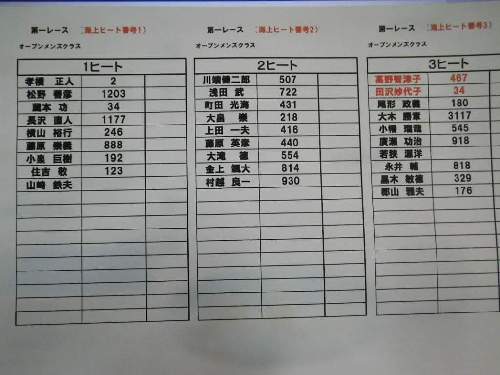 第一レース （海上ヒート番号1）
オープンメンズクラス
1ヒート
孝橋 正人 2
松野 哲彦 1203
蔵本 功 34
長沢 直人 1177
横山 裕行 246
藤原 崇義 888
小泉 巨樹 192
住吉 敬 123
山崎 鉄夫
第一レース （海上ヒート番号2）
オープンメンズクラス
2ヒート
川端健二郎 507
浅田 武 722
町田 光海 431
大畠 崇 218
上田 一夫 416
藤原 英彦 440
大滝 徳 554
金上 颯大 814
村越 良一 930
第一レース （海上ヒート番号3）
オープンメンズクラス
3ヒート
高野智津子 467
田沢妙代子 34
尾形 政義 180
大木 勝軍 3117
小幡 瑠哉 545
廣瀬 功治 918
若狭 渥洋
永井 輔 818
黒木 敏徳 329
郡山 雅夫 176